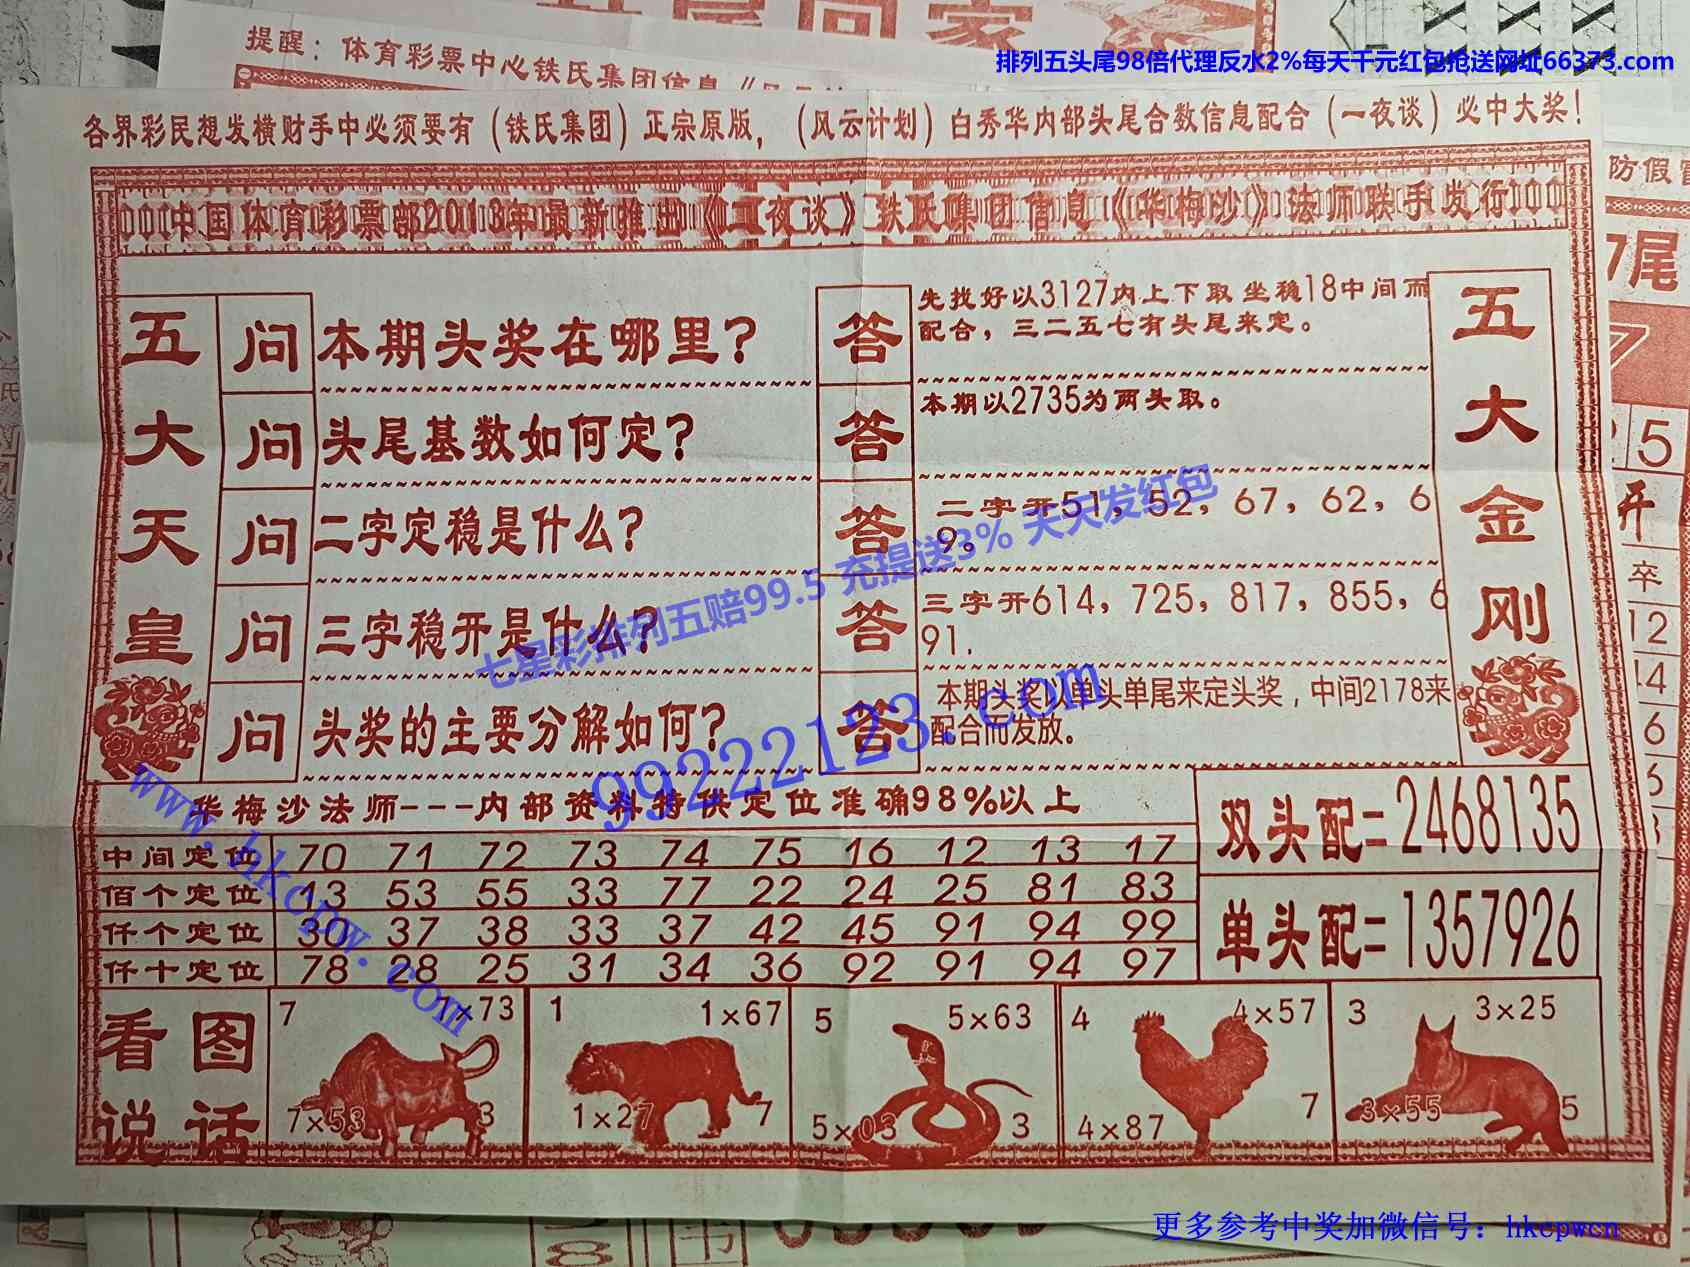 提醒：体育彩票中心铁氏集团信息
排列五头尾98倍代理反水2%每天千元红包抢送网址66373.com
各界彩民想发横财手中必须要有（铁氏集团）正宗原版，（风云计划）白秀华内部头尾合数信息配合（一夜谈）必中大奖！
防假冒
中国体育彩票部2013年最新推出《一夜谈》铁氏集团信息《华梅沙》法师联手发行
7尾
五大天皇
问 本期头奖在哪里？
答 先找好以3127内上下取坐稳18中间而
配合，三二五七有头尾来定。
问 头尾基数如何定？
答 本期以2735为两头取。
问 二字定稳是什么？
答 二字开51，52，67，62，6
9。
问 三字稳开是什么？
答 三字开614，725，817，855，6
91.
问 头奖的主要分解如何？
答 本期头奖以单头单尾来定头奖，中间2178来
配合而发放。
五大金刚
七星彩排列五赔99.5 充提送3% 天天发红包
99222123.com
华梅沙法师---内部资料特供定位准确98%以上
中间定位 70 71 72 73 74 75 16 12 13 17
佰个定位 13 53 55 33 77 22 24 25 81 83
仟个定位 30 37 38 33 37 42 45 91 94 99
仟十定位 78 28 25 31 34 36 92 91 94 97
双头配=2468135
单头配=1357926
看图
说话
7 1×73
7×53 3
1 1×67
1×27 7
5 5×63
5×03 3
4 4×57
4×87 7
3 3×25
3×55 5
更多参考中奖加微信号：hkcpwcn